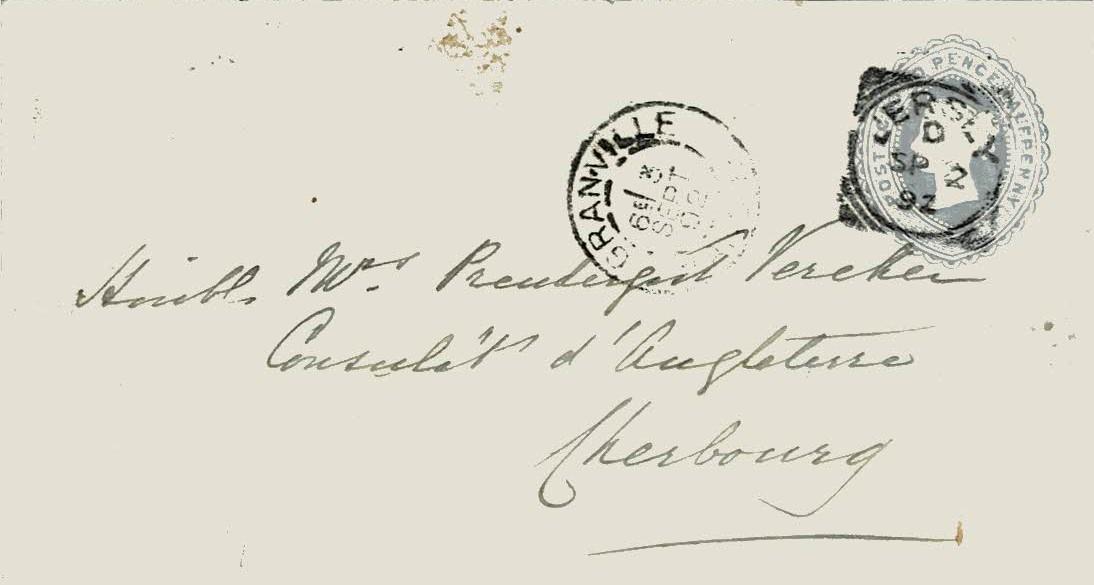 POSTAGE TWO PENCE HALFPENNY
JERSEY
D
SP 2
92
GRANVILLE
SEPT
92
Honbl. Mrs. Prendergast Vereker
Consulat d'Angleterre
Cherbourg